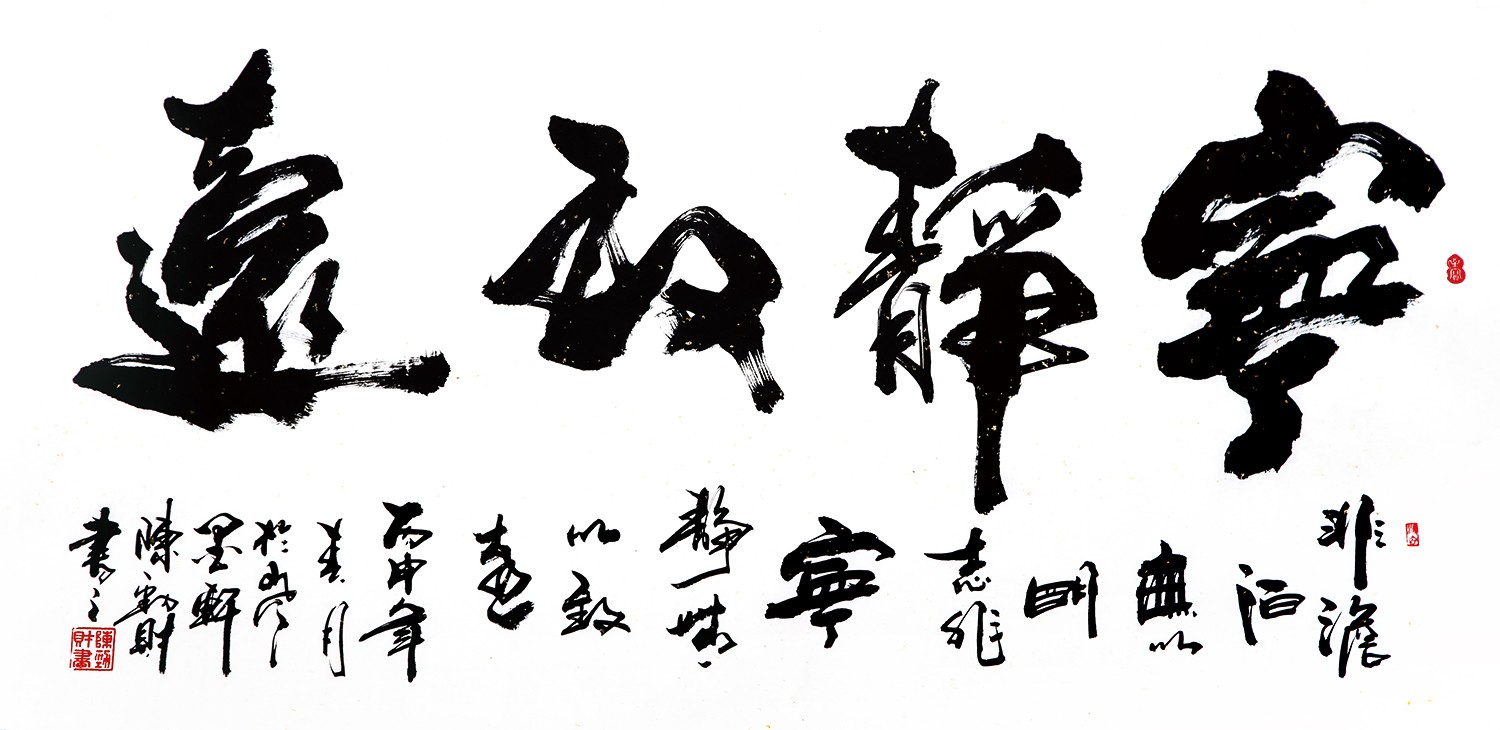 寧靜致遠
非澹
泊
無以
明
志非
寧
靜無
以致
遠
丙申年
春月
於山
墨軒
陳勁財
書之
陳勁財書